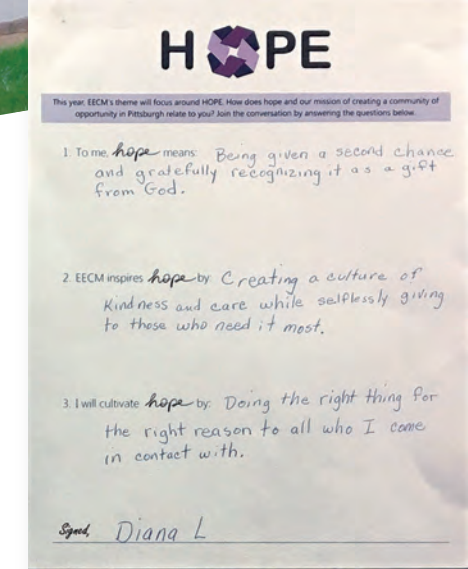 HOPE
This year, EECM's theme will focus around HOPE. How does hope and our mission of creating a community of
opportunity in Pittsburgh relate to you? Join the conversation by answering the questions below.
1. To me, hope means: Being given a second chance
and gratefully recognizing it as a gift
from God.
2. EECM inspires hope by: Creating a culture of
Kindness and care while selflessly giving
to those who need it most.
3. I will cultivate hope by: Doing the right thing for
the right reason to all who I come
in contact with.
Signed, Diana L